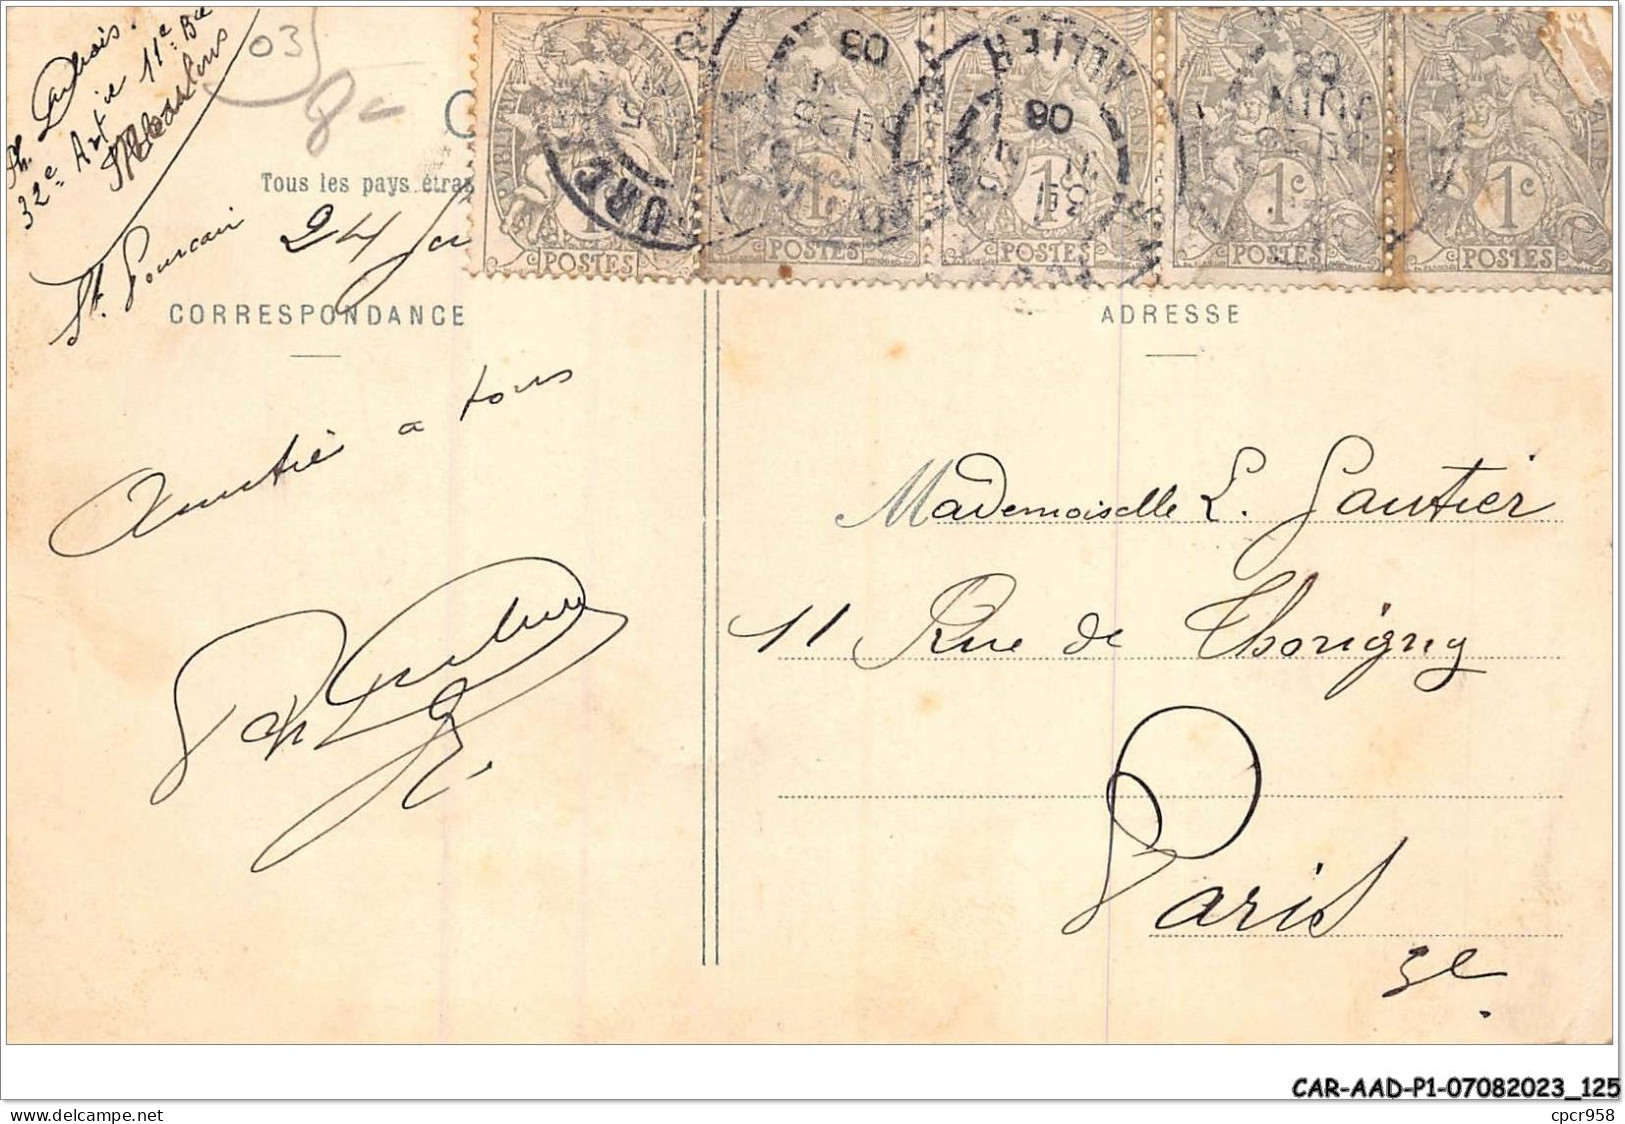 Ph. Dubois.
32e Art ie 11e Bie
03
8-
Tous les pays étran
St. Pourcain 24 Ju
CORRESPONDANCE
ADRESSE
1c POSTES
1c POSTES
1c POSTES
1c POSTES
1c POSTES
ALLIER
08
JUIN
08
Amitié a tous
Mademoiselle L. Gautier
11 Rue de Thorigny
Paris
3e.
CAR-AAD-P1-07082023_125
www.delcampe.net
cpcr958